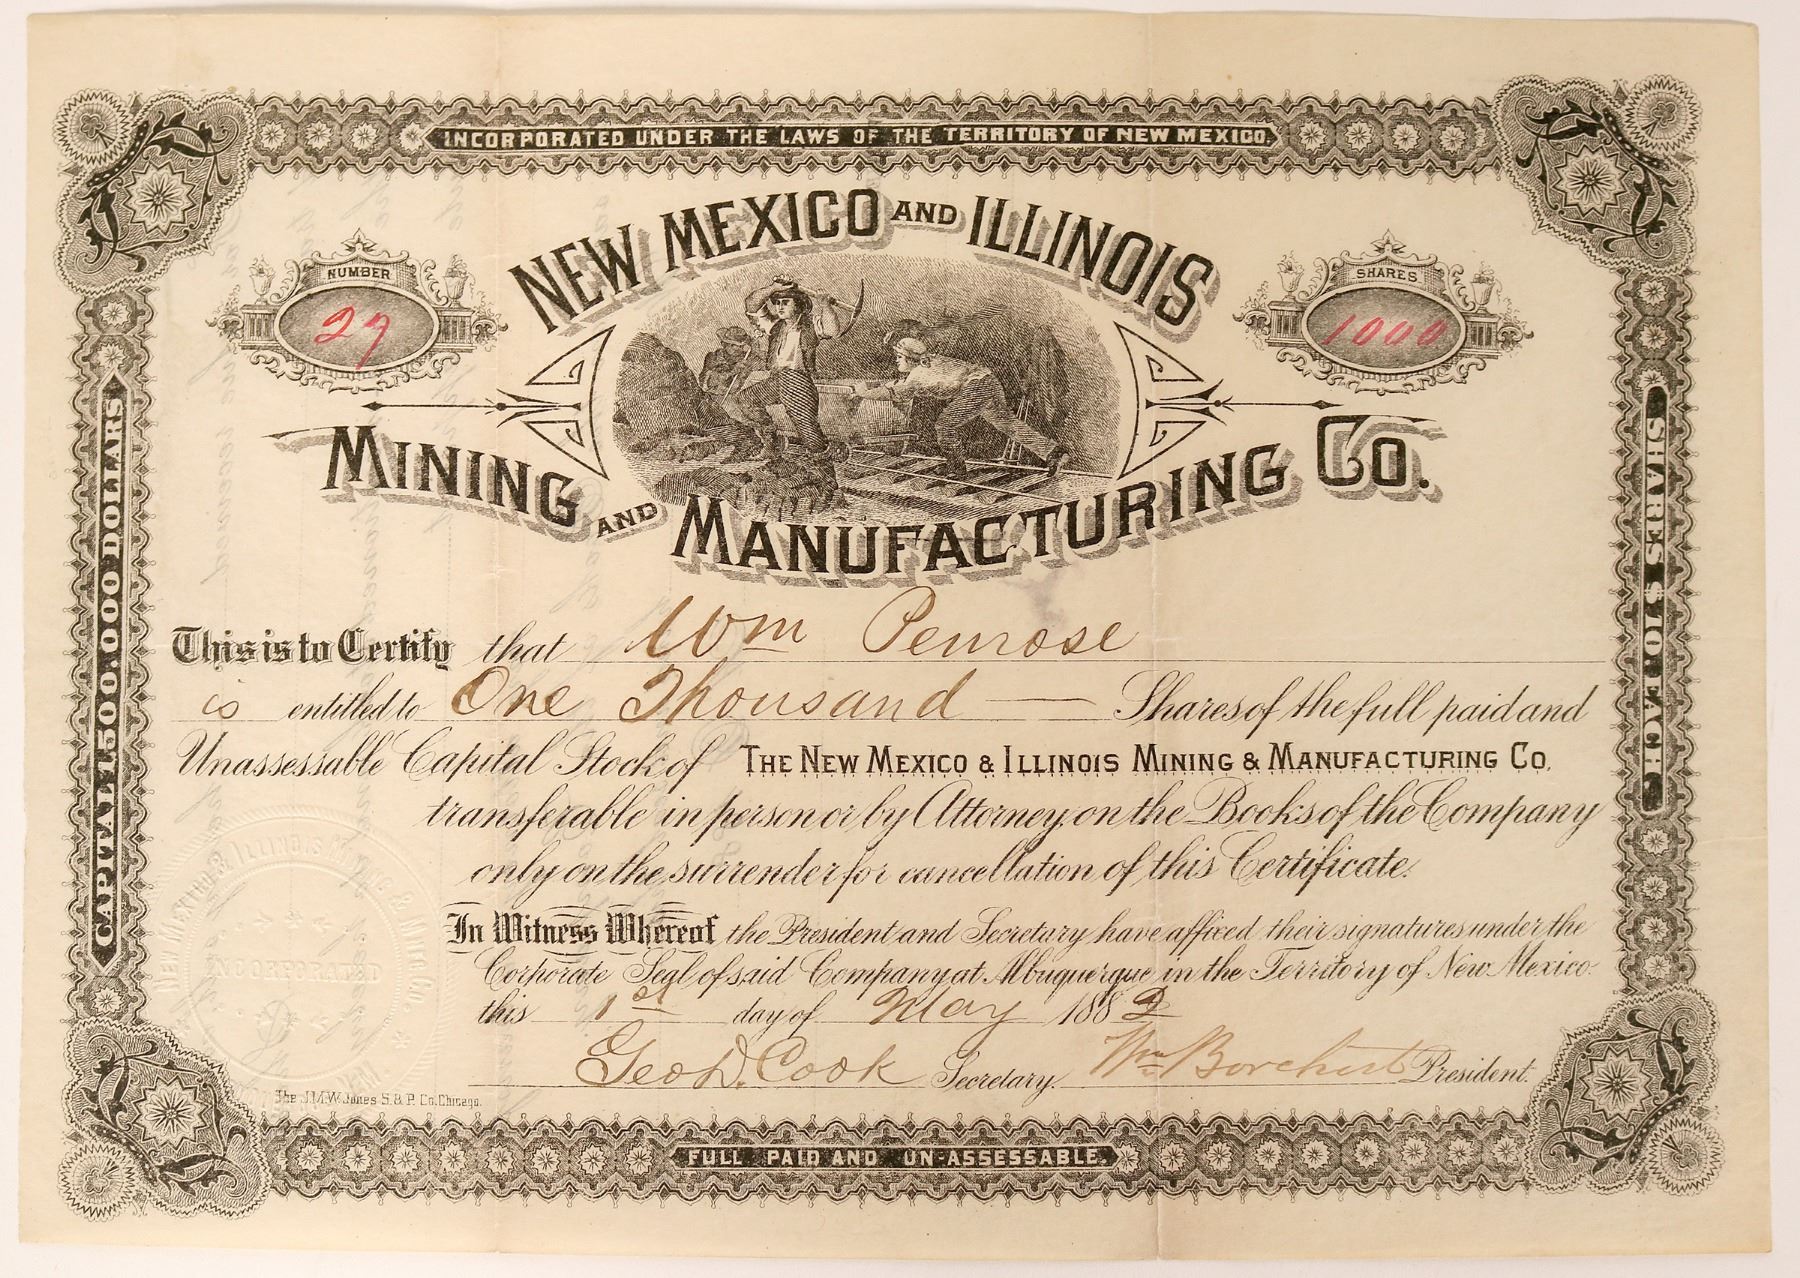 INCORPORATED UNDER THE LAWS OF THE TERRITORY OF NEW MEXICO.
NUMBER
27
SHARES
1000
NEW MEXICO AND ILLINOIS
MINING AND MANUFACTURING CO.
CAPITAL 1,500,000 DOLLARS
SHARES $10 EACH
This is to Certify that Wm Penrose
is entitled to One Thousand — Shares of the full paid and
Unassessable Capital Stock of THE NEW MEXICO & ILLINOIS MINING & MANUFACTURING CO.
transferable in person or by Attorney, on the Books of the Company
only on the surrender for cancellation of this Certificate.
In Witness Whereof the President and Secretary have affixed their signatures under the
Corporate Seal of said Company at Albuquerque in the Territory of New Mexico.
this 1st day of May 1882
Geo D. Cook Secretary. Wm Borchert President.
NEW MEXICO & ILLINOIS MINING & MFG CO.
INCORPORATED
The J.M.W. Jones S. & P. Co. Chicago.
FULL PAID AND UN-ASSESSABLE.